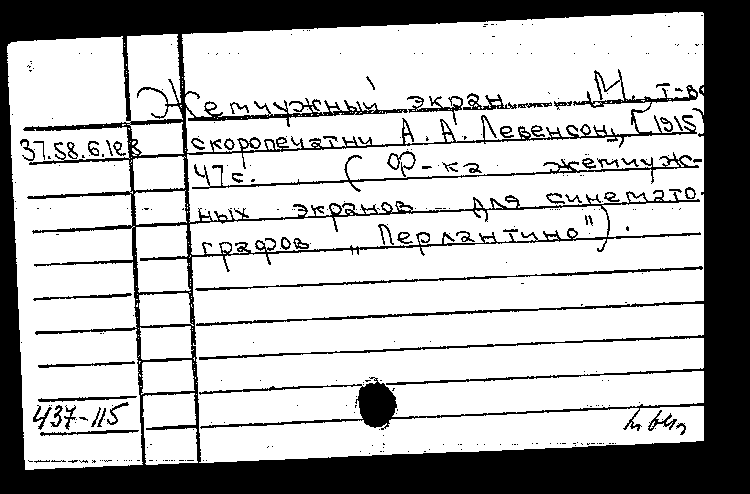 Жемчужный экран. М., т-во
37.58.6.188 скоропечатни А. А. Левенсон, [1915]
47с. (Ф-ка жемчуж-
ных экранов для синемато-
графов „Перлантино").
437-115